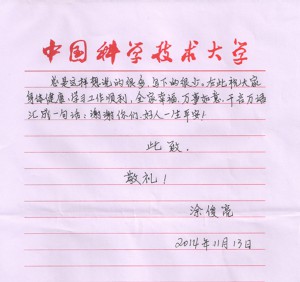 中国科学技术大学
总是这样想说的很多，写下的很少。在此祝大家
身体健康，学习工作顺利，全家幸福，万事如意，千言万语
汇成一句话：谢谢你们，好人一生平安！
此致，
敬礼！
涂俊亮
2014年11月13日